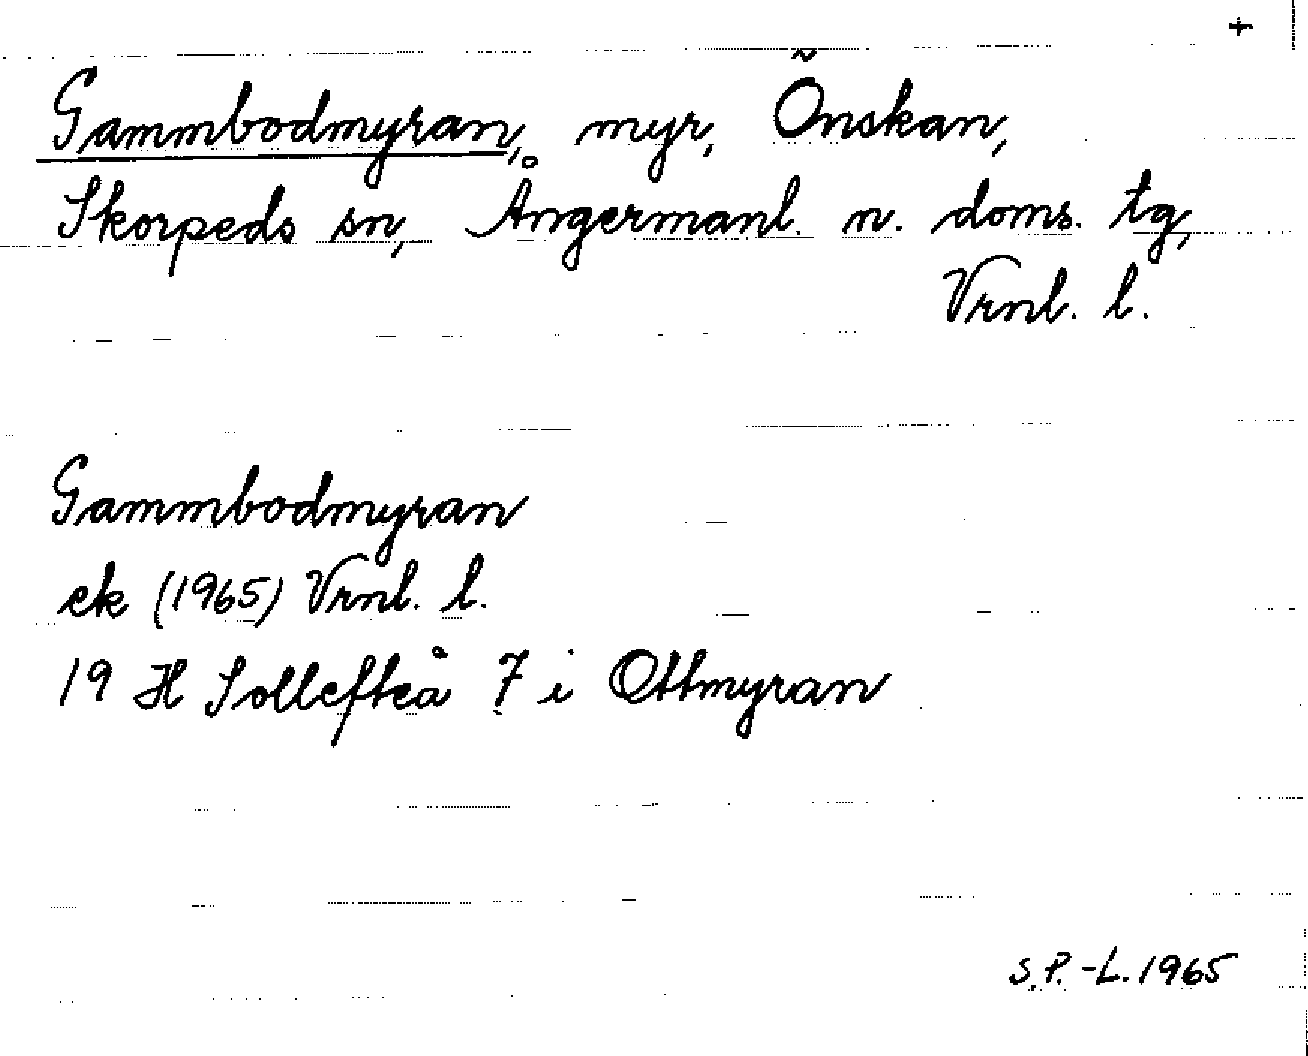 +
Gammbodmyran, myr, Önskan,
Skorpeds sn, Ångermanl. n. doms. tg,
Vrnl. l.
Gammbodmyran
ek (1965) Vrnl. l.
19 H Sollefteå 7 i Ottmyran
S.P.-L. 1965